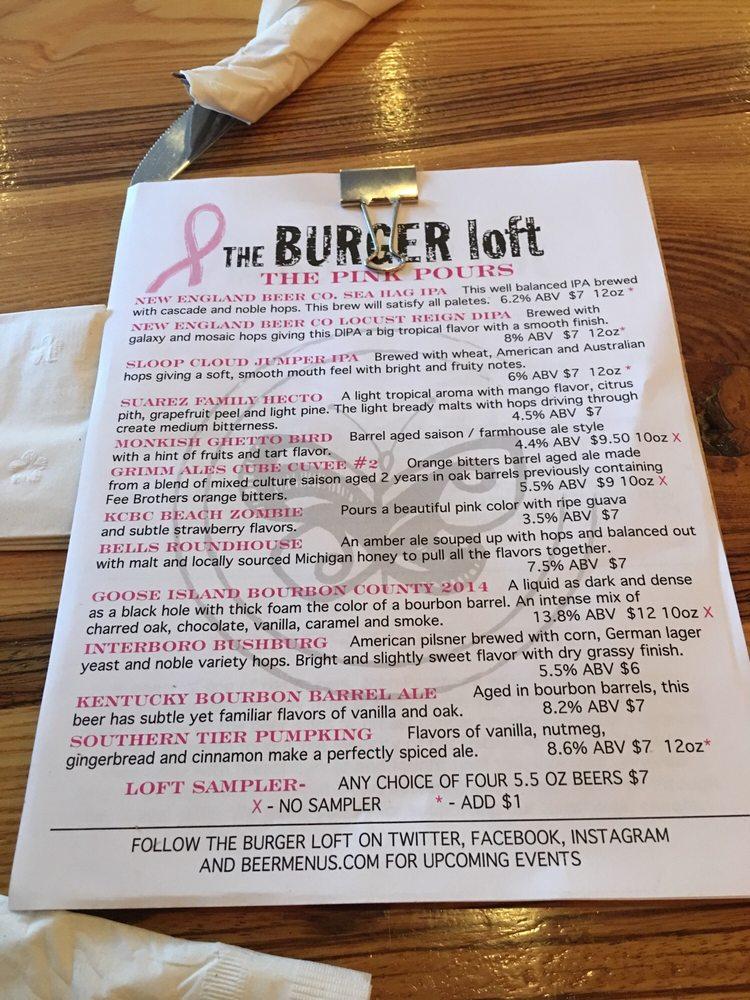 THE BURGER loft
THE PINK POURS
NEW ENGLAND BEER CO. SEA HAG IPA This well balanced IPA brewed
with cascade and noble hops. This brew will satisfy all paletes. 6.2% ABV $7 12oz *
NEW ENGLAND BEER CO LOCUST REIGN DIPA Brewed with
galaxy and mosaic hops giving this DIPA a big tropical flavor with a smooth finish.
8% ABV $7 12oz*
SLOOP CLOUD JUMPER IPA Brewed with wheat, American and Australian
hops giving a soft, smooth mouth feel with bright and fruity notes.
6% ABV $7 12oz *
SUAREZ FAMILY HECTO A light tropical aroma with mango flavor, citrus
pith, grapefruit peel and light pine. The light bready malts with hops driving through
create medium bitterness. 4.5% ABV $7
MONKISH GHETTO BIRD Barrel aged saison / farmhouse ale style
with a hint of fruits and tart flavor. 4.4% ABV $9.50 10oz X
GRIMM ALES CUBE CUVEE #2 Orange bitters barrel aged ale made
from a blend of mixed culture saison aged 2 years in oak barrels previously containing
Fee Brothers orange bitters. 5.5% ABV $9 10oz X
KCBC BEACH ZOMBIE Pours a beautiful pink color with ripe guava
and subtle strawberry flavors. 3.5% ABV $7
BELLS ROUNDHOUSE An amber ale souped up with hops and balanced out
with malt and locally sourced Michigan honey to pull all the flavors together.
7.5% ABV $7
GOOSE ISLAND BOURBON COUNTY 2014 A liquid as dark and dense
as a black hole with thick foam the color of a bourbon barrel. An intense mix of
charred oak, chocolate, vanilla, caramel and smoke. 13.8% ABV $12 10oz X
INTERBORO BUSHBURG American pilsner brewed with corn, German lager
yeast and noble variety hops. Bright and slightly sweet flavor with dry grassy finish.
5.5% ABV $6
KENTUCKY BOURBON BARREL ALE Aged in bourbon barrels, this
beer has subtle yet familiar flavors of vanilla and oak. 8.2% ABV $7
SOUTHERN TIER PUMPKING Flavors of vanilla, nutmeg,
gingerbread and cinnamon make a perfectly spiced ale. 8.6% ABV $7 12oz*
LOFT SAMPLER- ANY CHOICE OF FOUR 5.5 OZ BEERS $7
X - NO SAMPLER * - ADD $1
FOLLOW THE BURGER LOFT ON TWITTER, FACEBOOK, INSTAGRAM
AND BEERMENUS.COM FOR UPCOMING EVENTS